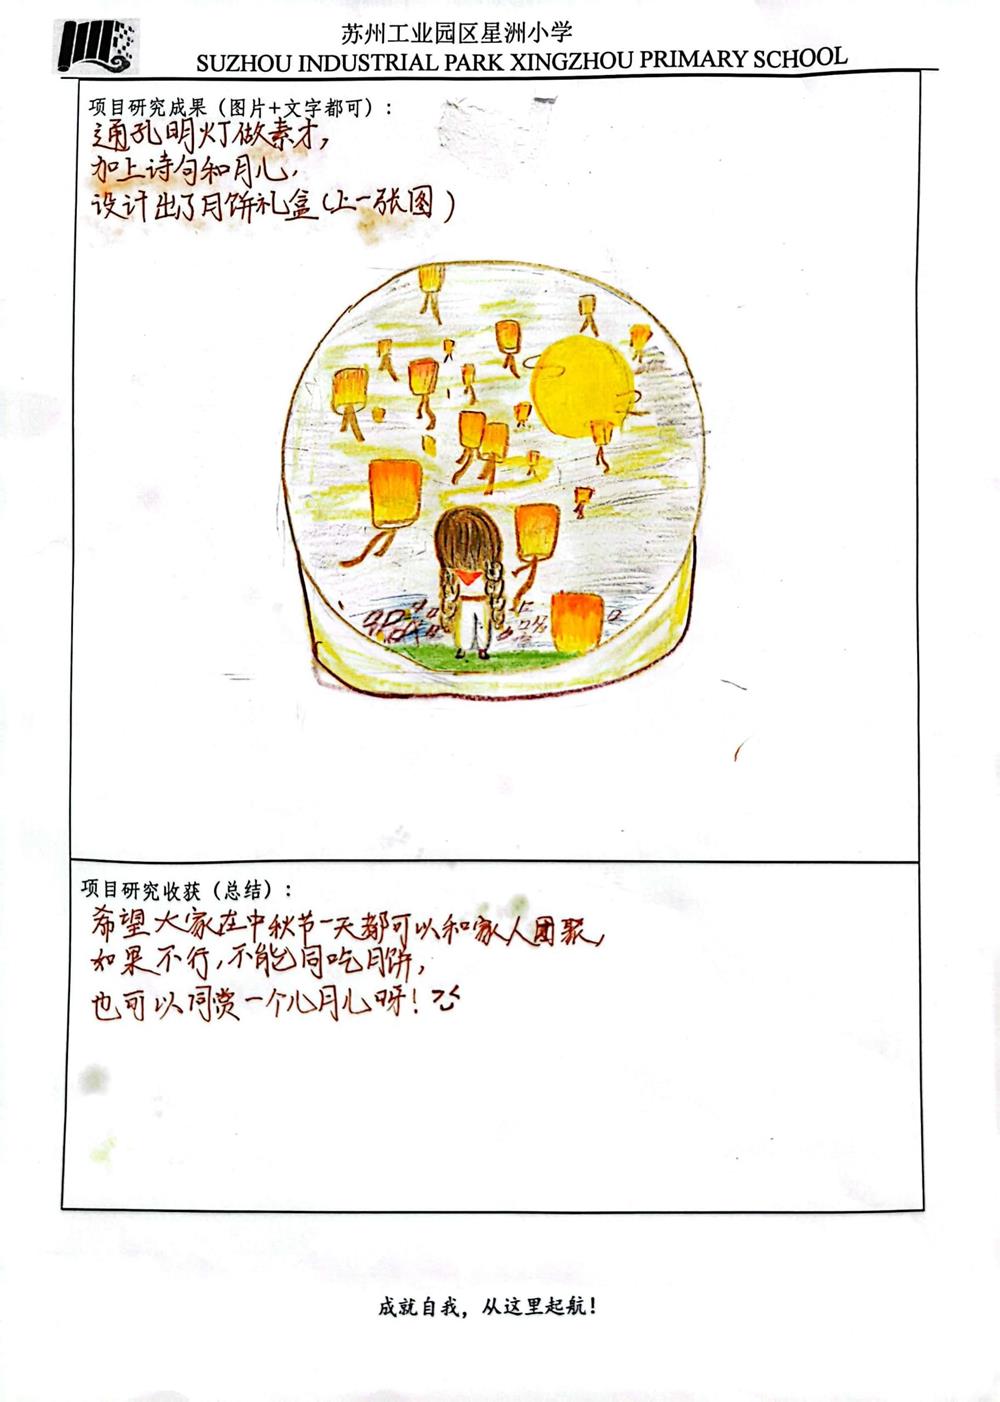 苏州工业园区星洲小学
SUZHOU INDUSTRIAL PARK XINGZHOU PRIMARY SCHOOL
项目研究成果（图片+文字都可）：
通孔明灯做素才，
加上诗句和月儿，
设计出了月饼礼盒（上一张图）
项目研究收获（总结）：
希望大家在中秋节一天都可以和家人团聚，
如果不行，不能同吃月饼，
也可以同赏一个儿月儿呀！
成就自我，从这里起航！